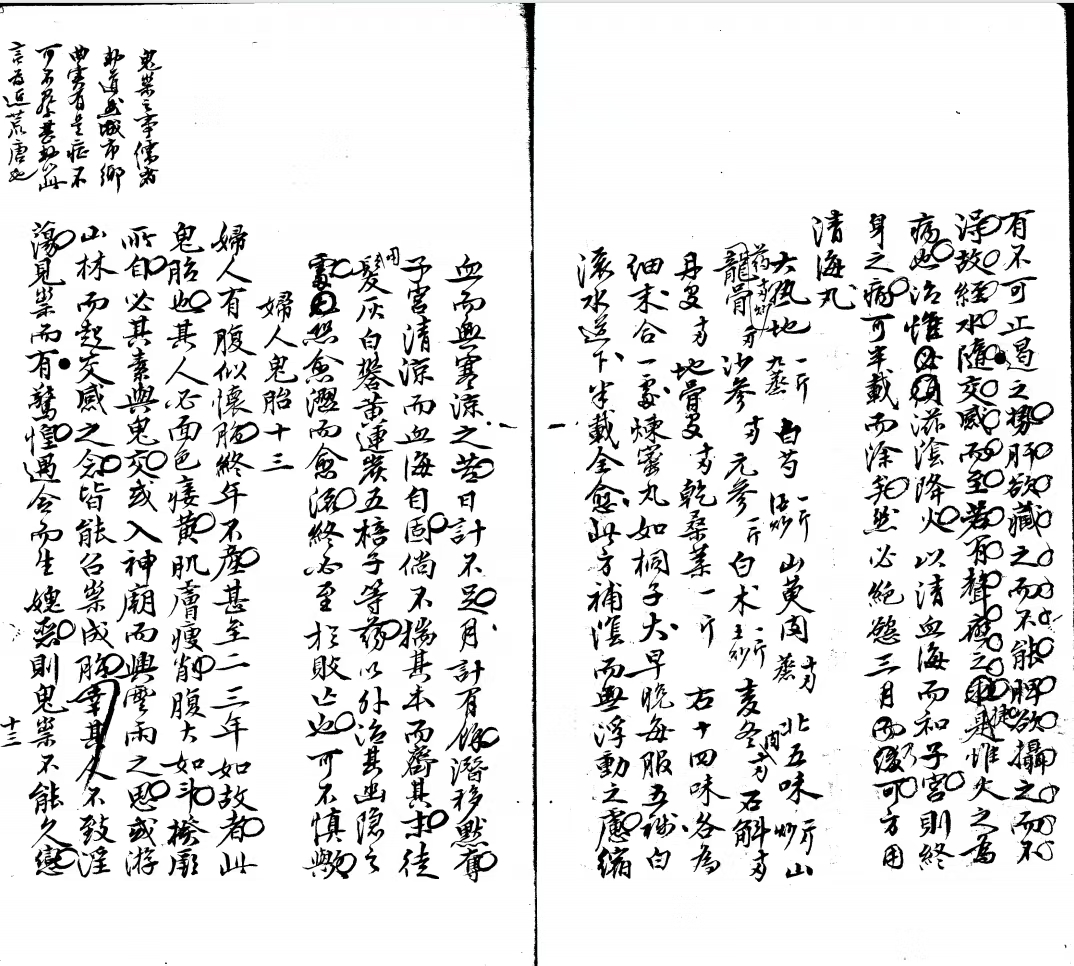 有不可止遏之勢肝欲藏之而不能脾欲攝之而不
淂故經水隨交感而至若有聲應之捷是惟火之為
病也治惟必須滋陰降火以清血海而和子宮則終
身之病可半載而除矣然必絕慾三月而後可方用
清海丸
大熟地一斤九蒸 白芍一斤酒炒 山萸肉十兩蒸 北五味炒斤 山
藥十兩炒 丹皮十兩 沙參十兩 元參一斤 白术一斤土炒 麦冬肉十兩 石斛十兩
丹皮十兩 地骨皮十兩 乾桑葉一斤 右十四味各為
細末合一處煉蜜丸如桐子大早晚每服五錢白
滾水送下半載全愈此方補隂而無浮動之慮縮
血而無寒涼之苦日計不足月計有餘潛移黙奪
子宮清涼而血海自固倘不揣其本而齊其末徒用
髮灰白礬黄連炭五棓子等藥以外治其幽隐之
處恐愈澀而愈流終必至於敗亡也可不慎與
婦人鬼胎十三
婦人有腹似懷胎終年不產甚至二三年如故者此
鬼胎也其人必面色痿黄肌膚瘦削腹大如斗揆厥
所自必其素與鬼交或入神廟而興雲雨之思或游
山林而起交感之念皆能召祟成胎幸其人不致淫
蕩見祟而有驚惶遇合而生媿惡則鬼祟不能久戀
十三
鬼祟之事儒者
勿道然城市鄉
曲实有是症不
可不存其勿以此
言为近荒唐也